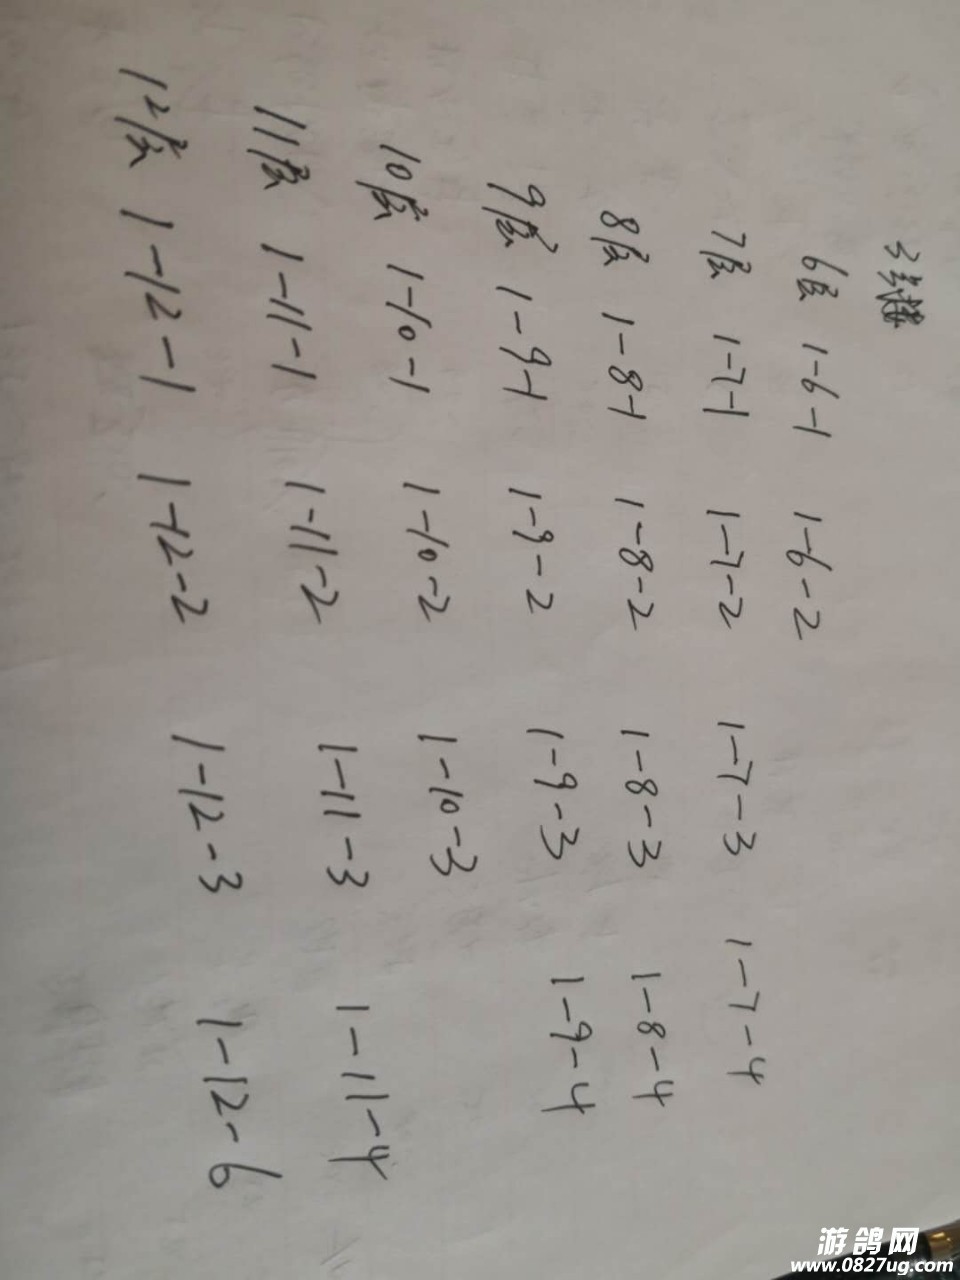 3号楼
6层 1-6-1 1-6-2
7层 1-7-1 1-7-2 1-7-3 1-7-4
8层 1-8-1 1-8-2 1-8-3 1-8-4
9层 1-9-1 1-9-2 1-9-3 1-9-4
10层 1-10-1 1-10-2 1-10-3
11层 1-11-1 1-11-2 1-11-3 1-11-4
12层 1-12-1 1-12-2 1-12-3 1-12-6
游鸽网
www.0827ug.com